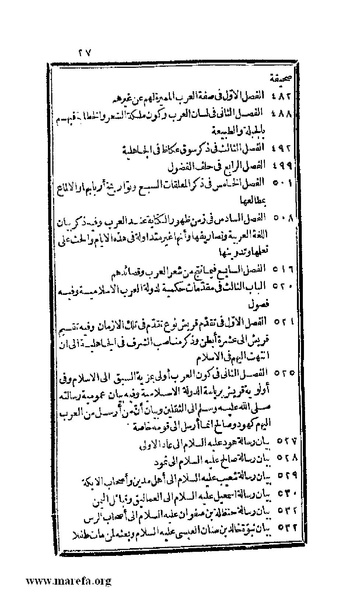 ٢٧
صحيفة
٤٨٢ الفصل الاول فى صفة العرب المميزة لهم عن غيرهم
٤٨٨ الفصل الثانى فى لسان العرب وكون ملكة الشعر والخطابة فيهم
بالجبلة والطبيعة
٤٩٢ الفصل الثالث فى ذكر سوق عكاظ فى الجاهلية
٤٩٩ الفصل الرابع فى حلف الفضول
٥٠١ الفصل الخامس فى ذكر المعلقات السبع وتواريخ أربابها والالماع
بمطالعها
٥٠٨ الفصل السادس فى زمن ظهور الكتابة عند العرب وفيه ذكر بيان
اللغة العربية وتصاريفها وأنها غير متداولة فى هذه الايام والحث على
تعلمها وتدوينها
٥١٦ الفصل السابع فيما نتج من شعر العرب وقصائدهم
٥٢٠ الباب الثالث فى مقدمات حكمية لدولة العرب الاسلامية وفيه
فصول
٥٢١ الفصل الاول فى تقدم قريش نوع تقدم فى تلك الازمان وفيه تقسيم
قريش الى عشرة أبطن وذكر مناصب الشرف فى الجاهلية الى ان
انتهت اليهم فى الاسلام
٥٢٥ الفصل الثانى فى كون العرب أولى بمزية السبق الى الاسلام وفى
أولوية قريش برياسة الدولة الاسلامية وفيه بيان عمومية رسالته
صلى الله عليه وسلم الى الثقلين وبيان أن من أرسل من العرب
اليهم كهود وصالح انما أرسل الى قومه خاصة
٥٢٧ بيان رسالة هود عليه السلام الى عاد الاولى
٥٢٨ بيان رسالة صالح عليه السلام الى ثمود
٥٢٩ بيان رسالة شعيب عليه السلام الى أهل مدين وأصحاب الايكة
٥٣٠ بيان رسالة اسمعيل عليه السلام الى العماليق وقبائل اليمن
٥٣٢ بيان رسالة حنظلة بن صفوان عليه السلام الى أصحاب الرس
٥٣٢ بيان نبوة خالد بن سنان العبسى عليه السلام وبعثه لمن مات طفلا
www.marefa.org